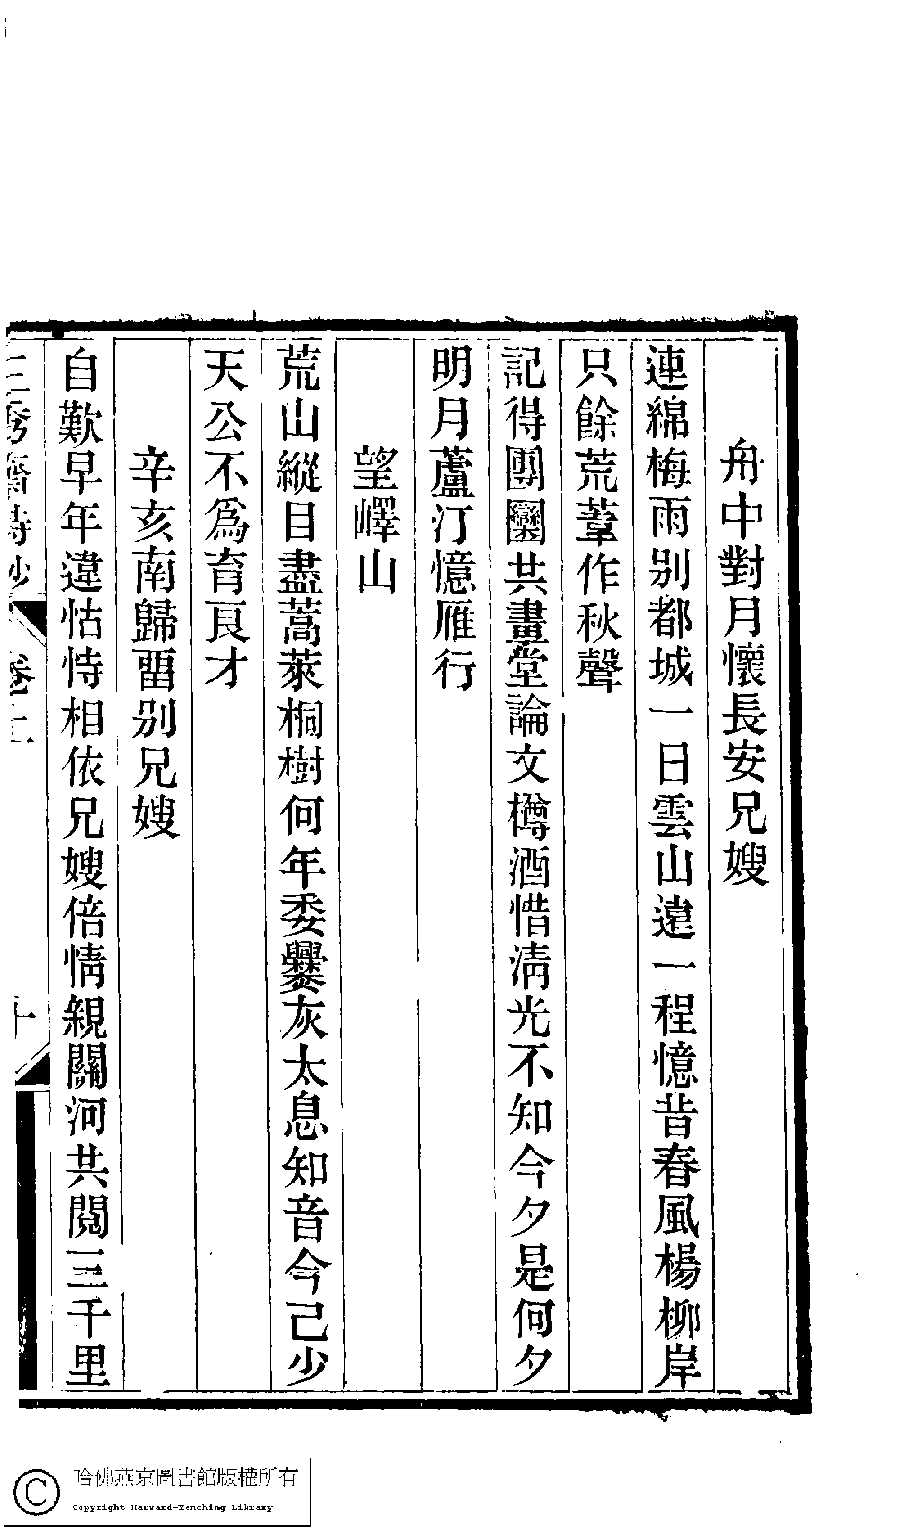 舟中對月懷長安兄嫂
連綿梅雨别都城一日雲山遠一程憶昔春風楊柳岸
只餘荒葦作秋聲
記得團圞共畫堂論文樽酒惜清光不知今夕是何夕
明月蘆汀憶雁行
望嶧山
荒山縱目盡蒿萊桐樹何年委爨灰太息知音今已少
天公不爲育良才
辛亥南歸畱别兄嫂
自歎早年違怙恃相依兄嫂倍情親關河共閱三千里
詩鈔 卷上 十
哈佛燕京圖書館版權所有
Copyright Harvard-Yenching Library